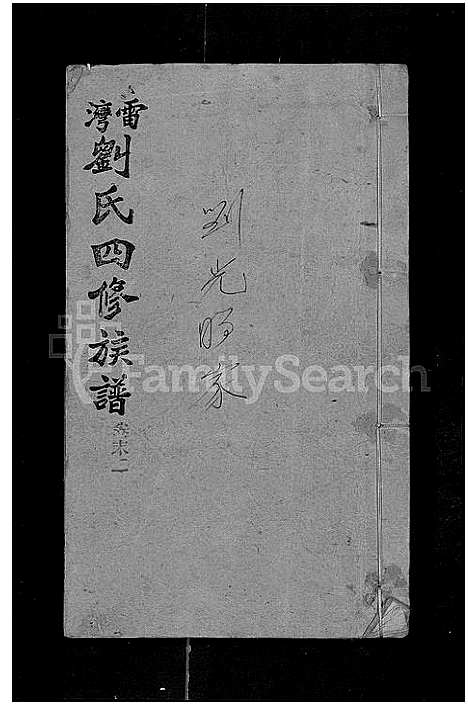 雷灣劉氏四修族譜
卷末二
劉光明家
FamilySearch